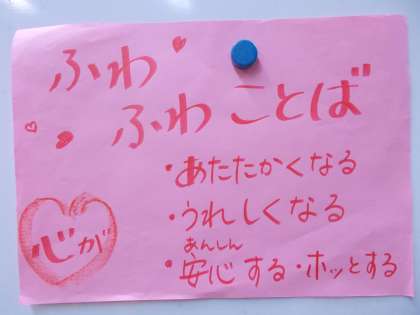 ふわ
ふわことば
・あたたかくなる
・うれしくなる
あんしん
・安心する・ホッとする
心が